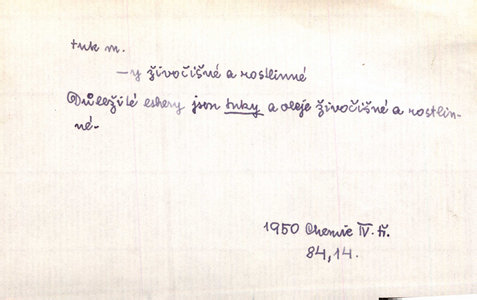 tuk m.
—y živočišné a rostlinné
Důležité estery jsou tuky a oleje živočišné a rostlin-
né.
1950 Chemie IV. tř.
84,14.